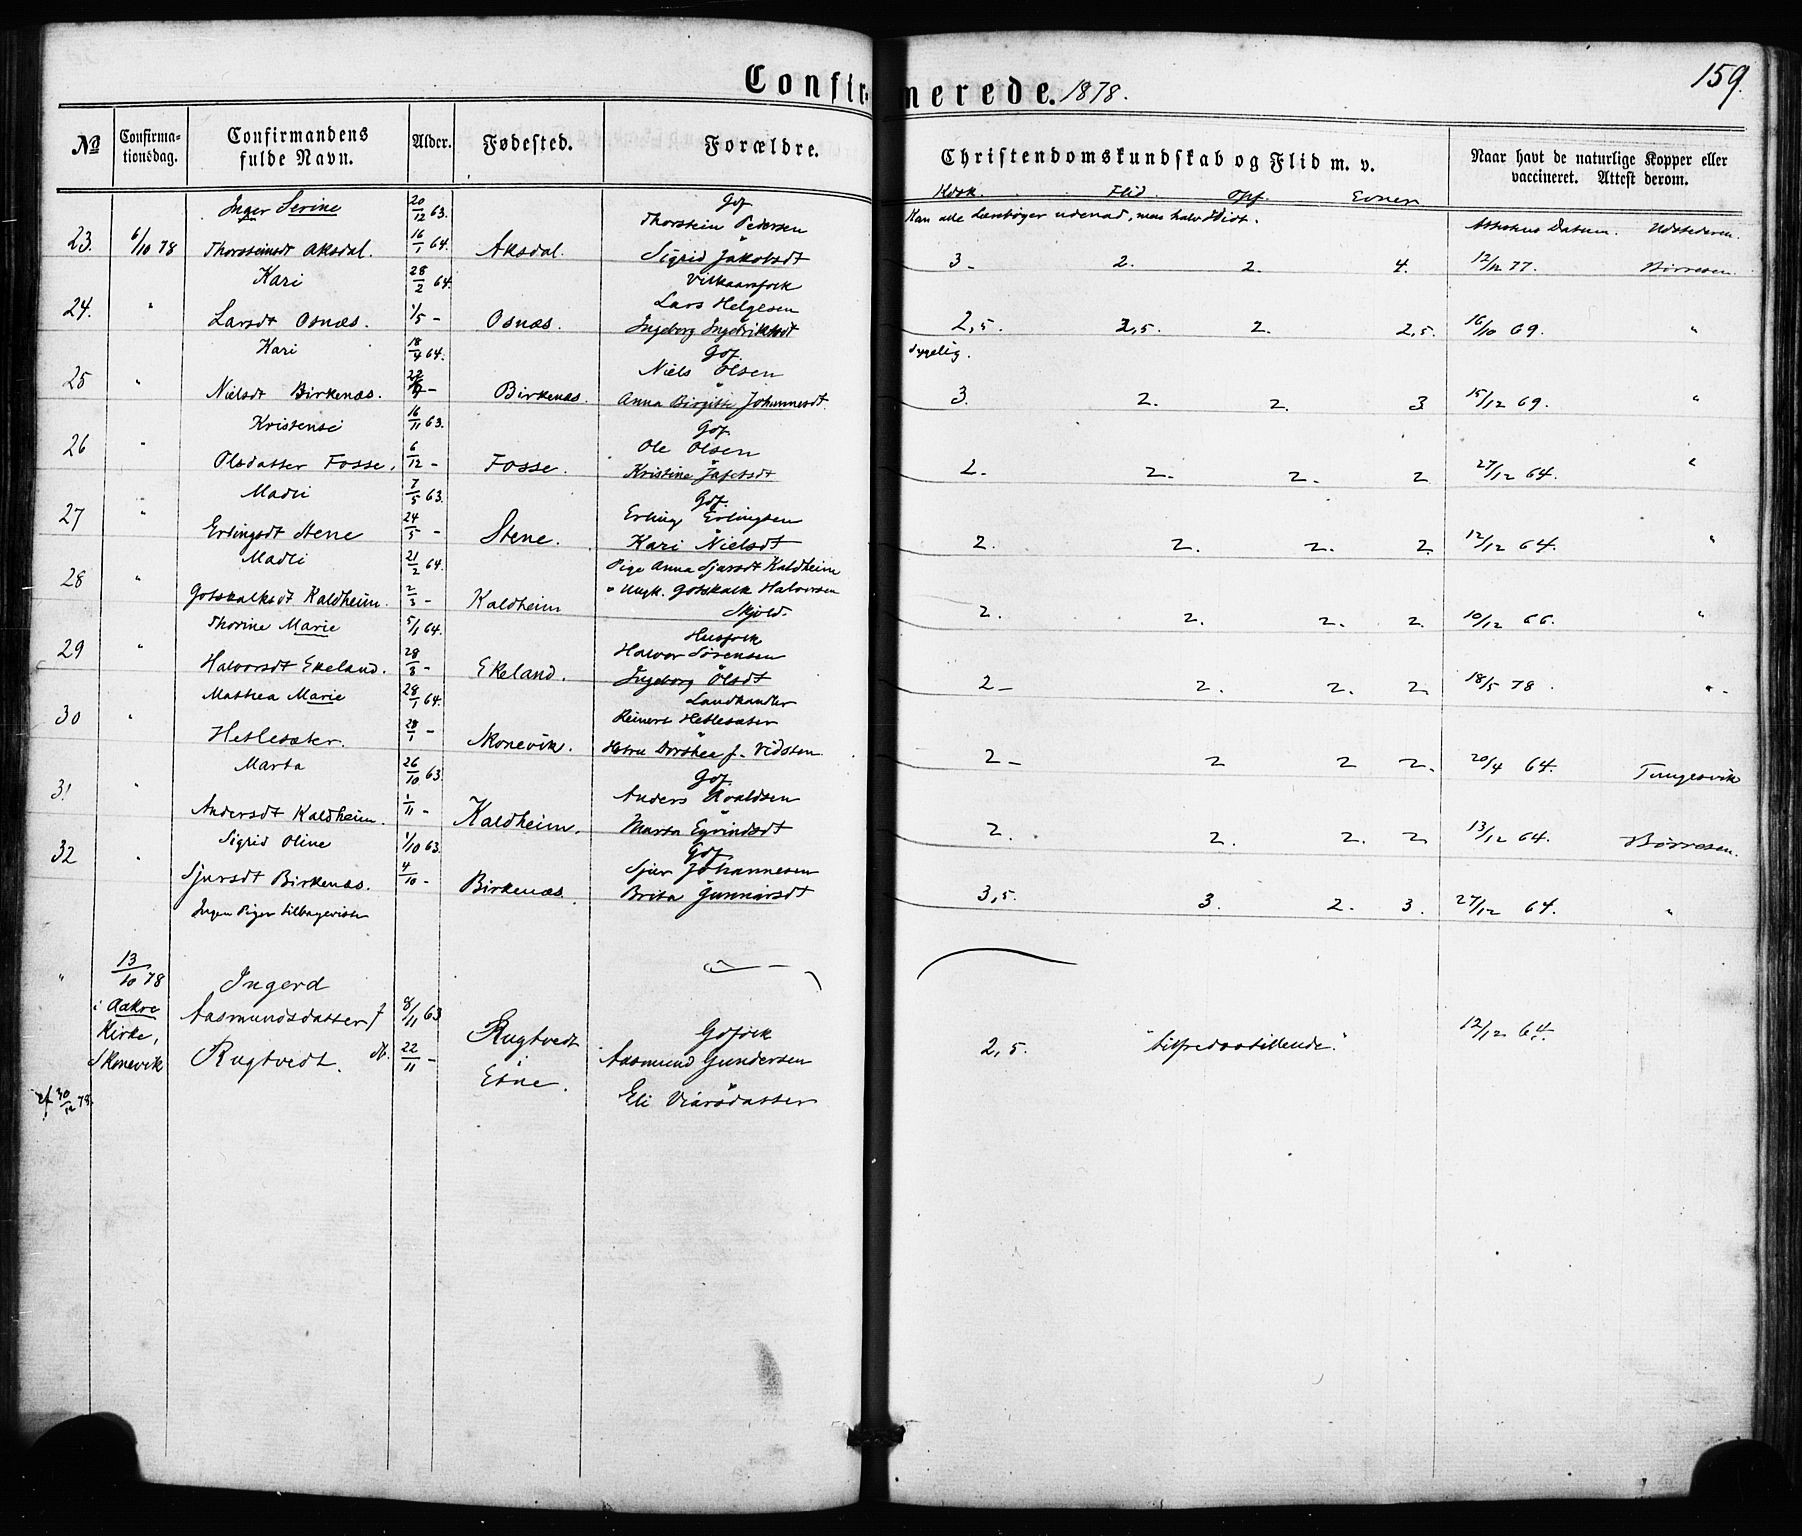 Confirmerede. 1878.
159.
No
Confirmationsdag.
Confirmandens fulde Navn.
Alder.
Fødested.
Forældre.
Christendomskundskab og Flid m. v.
Naar havt de naturlige Kopper eller vaccineret. Attest derom.
Kdsk. Flid. Opf. Evner
Attestens Datum. Udstederen.
Inger Serine 20/12 63. Gdf
Kan alle Lærebøger udenad, men
Thorstein Pedersen
23. 6/10 78 Thorsteinsdt Aksdal. 16/1 64. Aksdal. Sigrid Jakobsdt
3- 2. 2. 4. 12/12 77. Børresen
Kari 28/2 64. Vilkaarsfolk
Lars Helgesen
24. " Larsdt Osnæs. 1/5 - Osnæs. Ingeborg Ingebriktsdt
2,5. 2,5. 2. 2,5. 16/10 69. "
Kari 18/4 64. Gdf.
sygelig.
Niels Olsen
25 " Nielsdt Birkenæs. Birkenæs. Anna Birgitte Johannesdt
3. 2. 2. 3 15/12 69. "
Kristensi 16/11 63. Gdf
Ole Olsen
26 " Olsdatter Fosse. 6/12 - Fosse. Kristine Jafetsdt
2- 2. 2. 2 27/12 64. "
Madli 7/5 63. Gdf.
Erling Erlingsen
27 " Erlingsdt Stene 24/5 - Stene. Kari Nielsdt
2. 2. 2. 2 12/12 64. "
Madli 21/2 64. Pige Anna Sjursdt Kaldheim
" Ungk. Gotskalk Halvorsen
28 " Gotskalksdt Kaldheim. 2/3 - Kaldheim Skjold.
2. 2. 2. 2. 10/12 66. "
Thorine Marie 5/1 64. Husfolk
Halvor Sørensen
29 " Halvorsdt Ekeland. 28/3 - Ekeland. Ingeborg Olsdt
2- 2. 2. 2 18/5 78. "
Mathea Marie 28/1 64. Landhandler
Reinert Hetlesæter
30 " Hetlesæter. 28/1 - Skonevik. Hstru Dorthea f. Vidsten
2- 2 2 2. 20/4 64. Tungesvik
Marta 26/10 63 Gdf.
31 " Andersdt Kaldheim. 1/11 - Kaldheim. Anders
Marta Eyvindsdt
2. 2. 2. 2 13/12 64. Børresen.
Sigrid Oline 1/10 63. Gdf.
Sjur Johannesen
32 " Sjursdt Birkenæs. 4/10 - Birkenæs. Brita Gunnarsdt
3,5. 3. 2. 3. 27/12 64. "
Ingen Piger tilbageviste
" 13/10 78 Ingerd
i Aakre Aasmundsdatter f 8/11 63
Kirke, Rugtvedt Gdfolk
12/12 64.
Skonevik Rugtvedt. d. 22/11 - Aasmund Gundersen
2,5. "tilfredsstillende."
Etne.
ef 30/12 78. Eli Viarsdatter